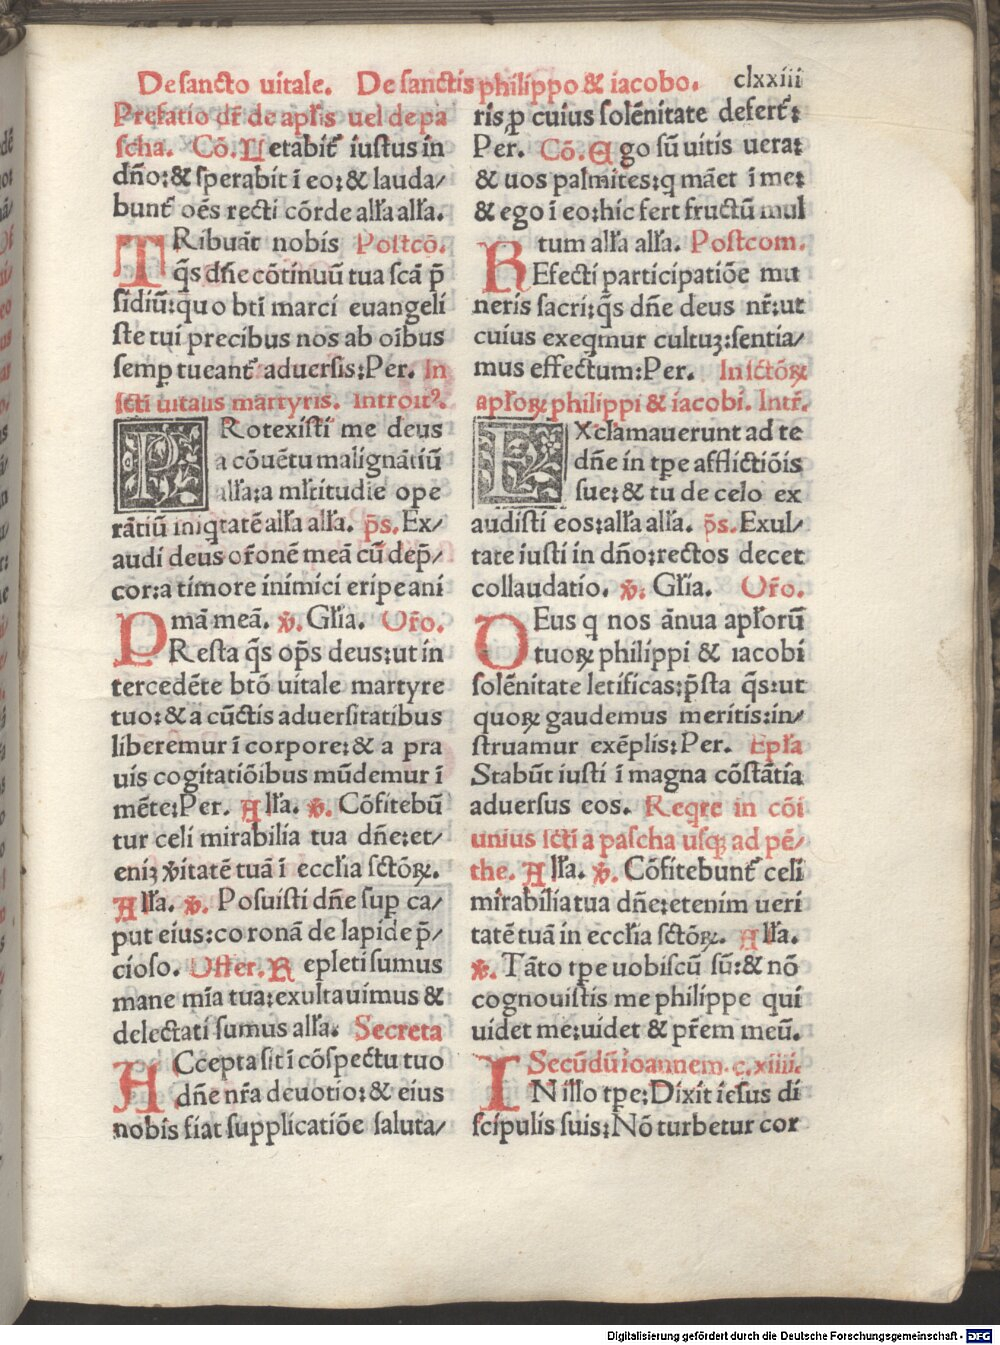 De sancto uitale. De sanctis philippo & iacobo. clxxiii
Prefatio dr̃ de aptis uel de pa
scha. Cõ. Letabit̃ iustus in
dño:& sperabit ĩ eo:& lauda/
bunt̃ oẽs recti cõrde alła alła.
TRibuãt nobis Postcõ.
q̃s dñe cõtinuũ tua scã p̃
sidiũ:quo bti marci euangeli
ste tui precibus nos ab oĩbus
semp tueant̃ aduersis:Per. In
scti uitalis martyris. introit⁹.
PRotexisti me deus
a cõuẽtu malignãtiũ
alła:a mltitudie ope
rãtiũ iniqtatẽ alła alła. p̃s. Ex/
audi deus or̃onẽ meã cũ dep̃/
cor:a timore inimici eripe ani
mã meã. ℣. Głia. Or̃o.
PResta q̃s op̃s deus:ut in
tercedẽte btõ uitale martyre
tuo:& a cũctis aduersitatibus
liberemur ĩ corpore:& a pra
uis cogitatiõibus mũdemur ĩ
mẽte:Per. Ałła. ℣. Cõfitebũ
tur celi mirabilia tua dñe:et/
eniꝫ ꝟitatẽ tuã ĩ eccłia sctõꝝ.
Ałła. ℣. Posuisti dñe sup ca/
put eius:coronã de lapide p̃/
cioso. Offer. Repleti sumus
mane mĩa tua:exultauimus &
delectati sumus alła. Secreta
ACcepta sit ĩ cõspectu tuo
dñe nr̃a deuotio:& eius
nobis fiat supplicatiõe saluta/
ris p cuius solẽnitate defert̃:
Per. Cõ. Ego sũ uitis uera:
& uos palmites:q mãet ĩ me:
& ego ĩ eo:hic fert fructũ mul
tum alła alła. Postcom.
REfecti participatiõe mu
neris sacri:q̃s dñe deus nr̃:ut
cuius exeqmur cultuꝫ:sentia/
mus effectum:Per. In sctõꝝ
apłoꝝ philippi & iacobi. Intr̃.
EXclamauerunt ad te
dñe in tpe afflictiõis
sue:& tu de celo ex
audisti eos:alła alła. p̃s. Exul/
tate iusti in dño:rectos decet
collaudatio. ℣. Głia. Or̃o.
DEus q nos ãnua apłorũ
tuoꝝ philippi & iacobi
solẽnitate letificas:p̃sta q̃s:ut
quoꝝ gaudemus meritis:in/
struamur exẽplis:Per. Epła
Stabũt iusti ĩ magna cõstãtia
aduersus eos. Reqre in cõi
unius scti a pascha usqꝫ ad pẽ/
the. Ałła. ℣. Cõfitebunt̃ celi
mirabilia tua dñe:etenim ueri
tatẽ tuã in eccłia sctõꝝ. Ałła.
℣. Tãto tpe uobiscũ sũ:& nõ
cognouistis me philippe qui
uidet me:uidet & pr̃em meũ.
Secũdũ ioannem. c. xiiii.
IN illo tpe:Dixit iesus di
scipulis suis:Nõ turbetur cor
Digitalisierung gefördert durch die Deutsche Forschungsgemeinschaft - DFG